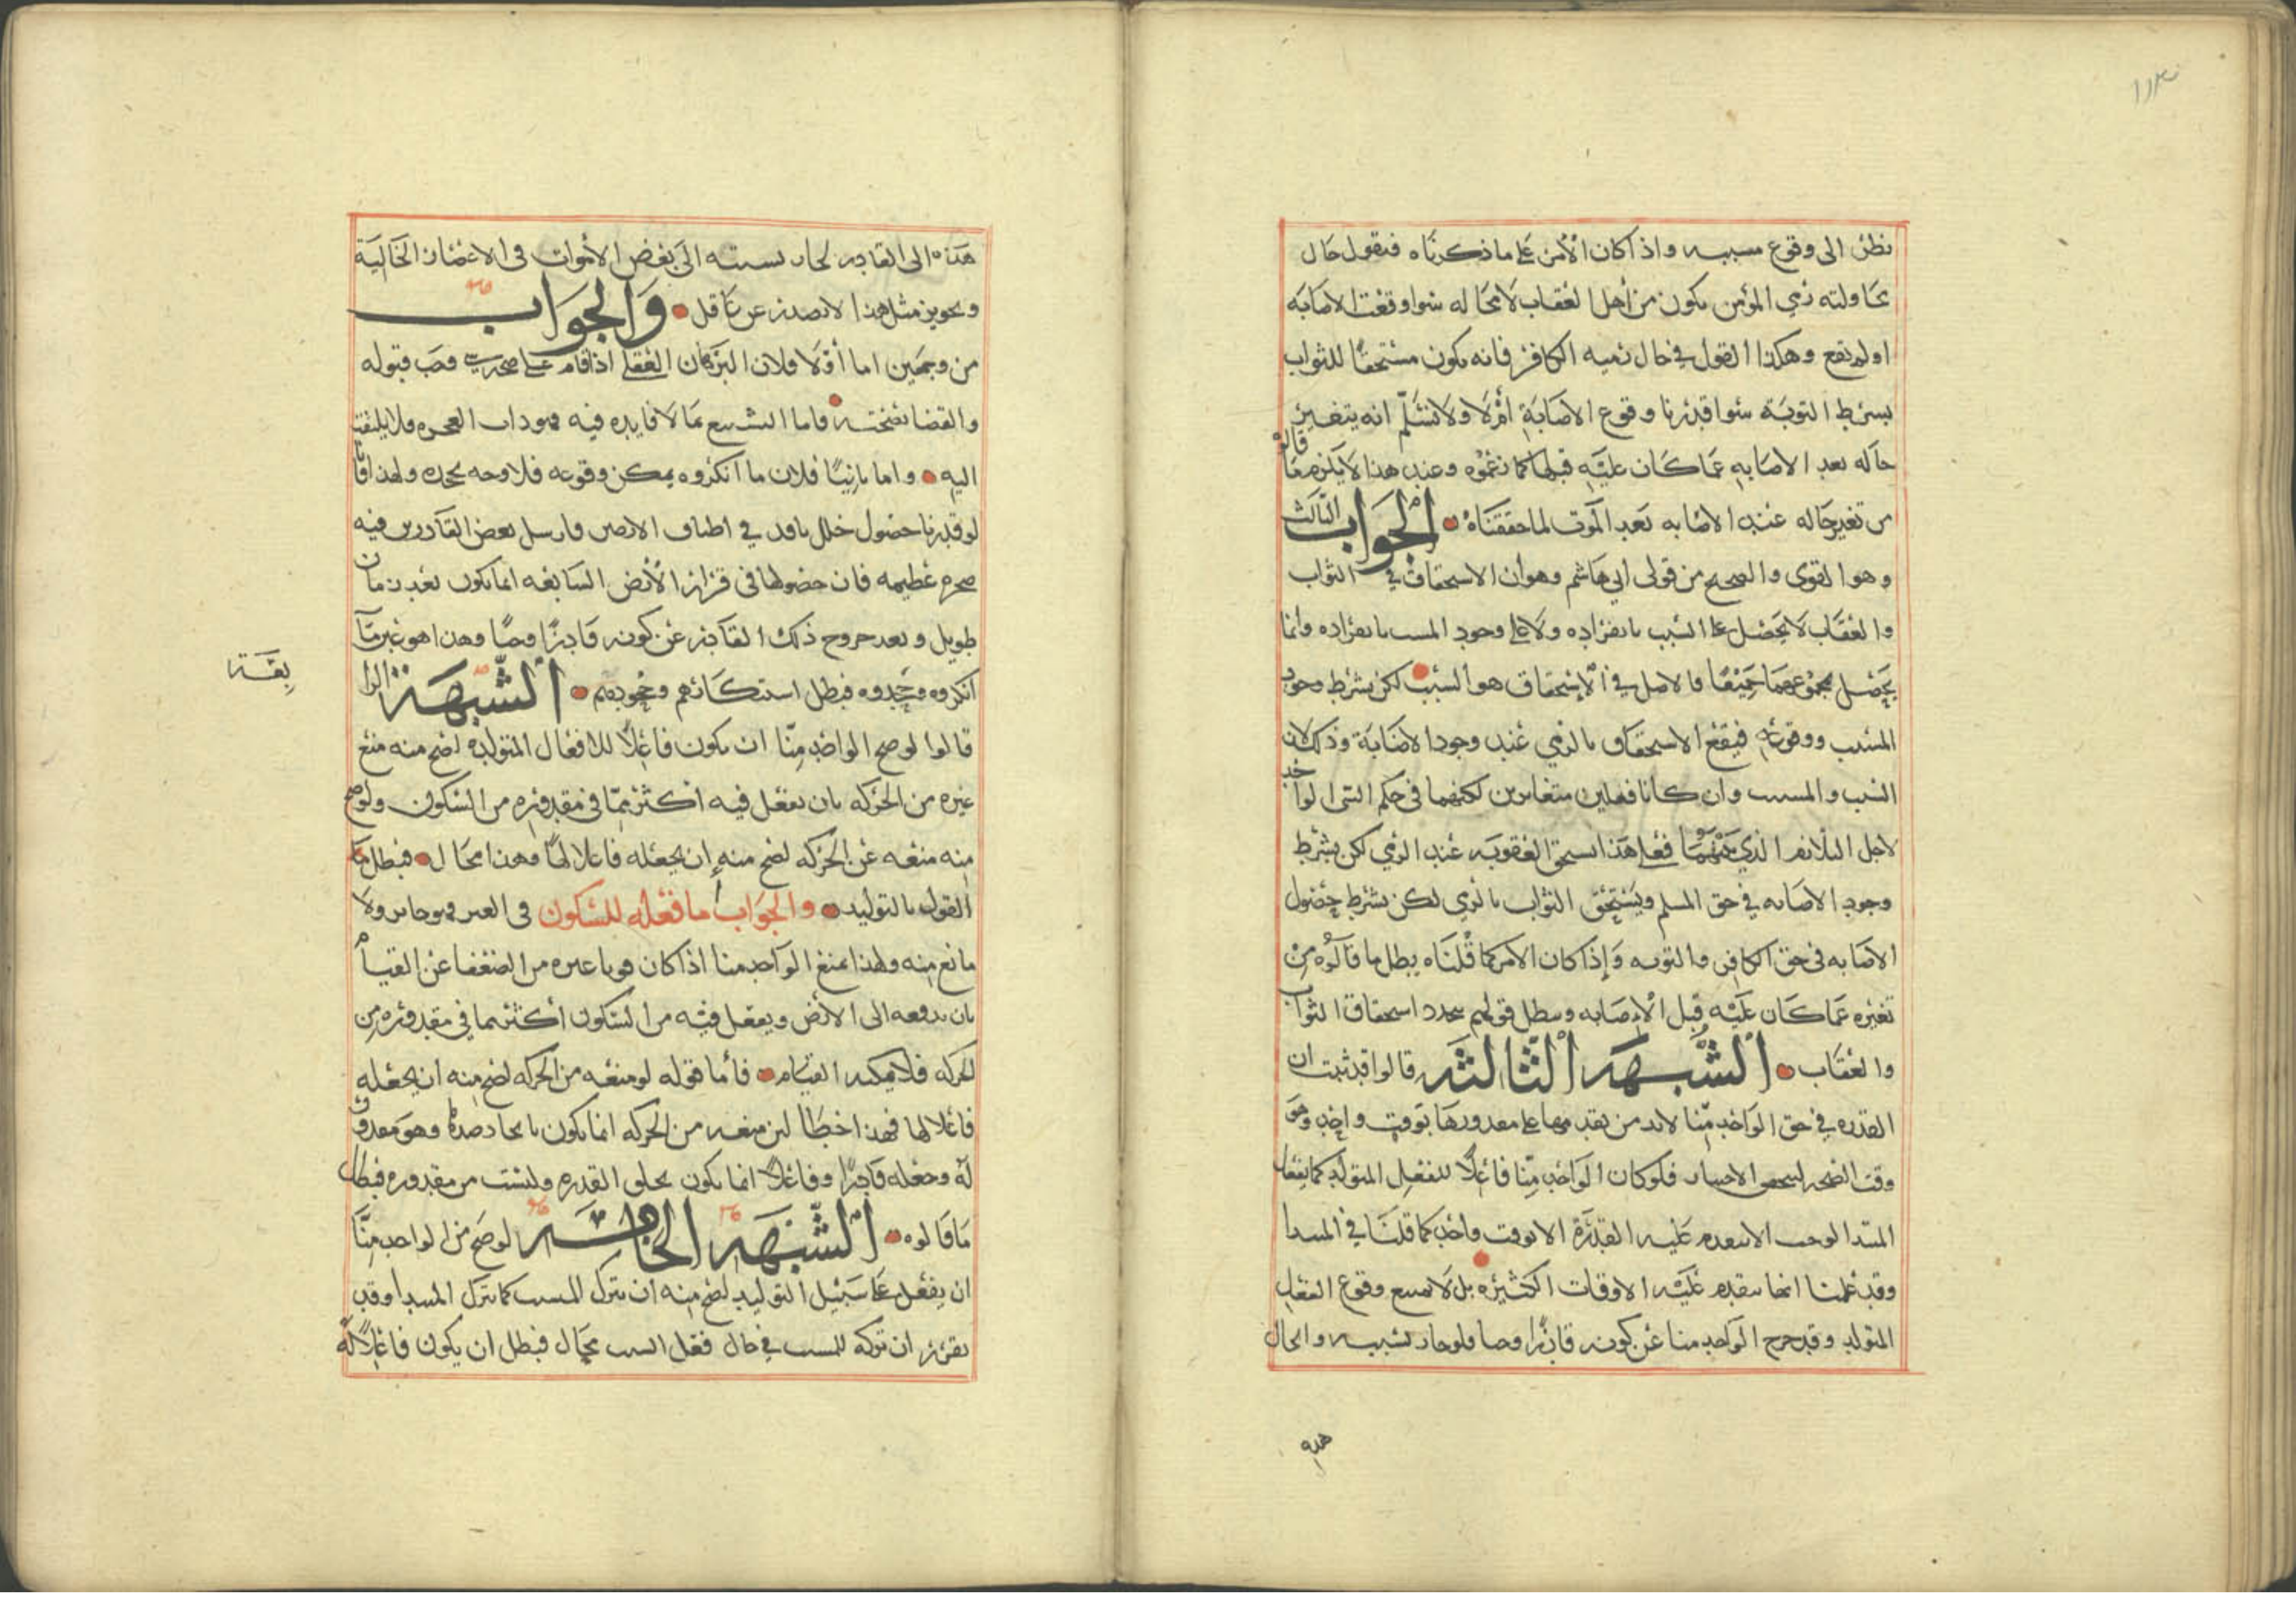 نظر الى وقوع مسببه واذا كان الأمر على ما ذكرناه فنقول حال
محاولته رمي المؤمن يكون من أهل العقاب لا محاله سوا وقعت الاصابه
او لم تقع وهكذا القول في حال رميه الكافر فانه يكون مستحقا للثواب
بشرط التوبة سوا قدرنا وقوع الاصابة أم لا ولا نسلم انه يتغير
حاله بعد الاصابه عما كان عليه قبلها كما زعموه وعند هذا لا يلزم ما قالوه
من تغير حاله عند الاصابه بعد الموت لما حققناه الجواب الثالث
وهو القوى والصحيح من قولى ابي هاشم وهو أن الاستحقاق في الثواب
والعقاب لا يحصل على السبب بانفراده ولا على وجود المسبب بانفراده وانما
يحصل بمجموعهما جميعا فالاصل في الاستحقاق هو السبب لكن بشرط وجود
المسبب ووقوعه فيقع الاستحقاق بالرمي عند وجود الاصابة وذلك لان
السبب والمسبب وان كانا فعلين متغايرين لكنهما في حكم الشي الواحد
لاجل التلازم الذي بينهما فعلى هذا يستحق العقوبه عند الرمي لكن بشرط
وجود الاصابه في حق المسلم ويستحق الثواب بالرمي لكن بشرط حصول
الاصابه في حق الكافر والتوبه وإذا كان الامر كما قلناه بطل ما قالوه من
تغيره عما كان عليه قبل الاصابه وبطل قولهم بتجدد استحقاق الثواب
والعقاب الشبهه الثالثه قالوا قد ثبت ان
القدره في حق الواحد منا لابد من تقدمها على مقدورها بوقت واحد وهو
وقت الصحه ليتحقق الاختيار فلو كان الواحد منا فاعلا للفعل المتولد كما يفعل
المبتدا لوجب الا يتقدم عليه القدرة الا بوقت واحد كما قلنا في المبتدا
وقد علمنا انها تتقدم عليه الاوقات الكثيره بل لا يمتنع وقوع الفعل
المتولد وقد خرج الواحد منا عن كونه قادرا وحيا فلو جاز نسبته والحال
هذه
هذه الى القادر لجاز نسبته الى بعض الأموات في الاعصار الخالية
وتجويز مثل هذا لا يصدر عن عاقل والجواب
من وجهين اما أولا فلان البرهان العقلي اذا قام على صحة شي وجب قبوله
والقضا بصحته فاما التشنيع بما لا فايده فيه فهو داب العجزه فلا يلتفت
اليه واما ثانيا فلان ما انكروه يمكن وقوعه فلا وجه لجحده ولهذا فانا
لو قدرنا حصول خلل نافذ في اطباق الارض وارسل بعض القادرين فيه
صخره عظيمه فان حصولها في قرار الأرض السابعه انما يكون بعد زمان
طويل وبعد خروج ذلك القادر عن كونه قادرا وحيا وهذا هو عين ما
انكروه وجحدوه فبطل استنكارهم وجحودهم الشبهة الرا
بعة
قالوا لو صح الواحد منا ان يكون فاعلا للافعال المتولده لصح منه منع
غيره من الحركه بان يفعل فيه اكثر مما في مقدوره من السكون ولو صح
منه منعه عن الحركه لصح منه ان يجعله فاعلا لها وهذا محال فبطل
القول بالتوليد والجواب أما فعله للسكون في الغير فهو جايز ولا
مانع منه ولهذا يمنع الواحد منا اذا كان قويا غيره من الضعفا عن القيام
بان يدفعه الى الارض ويفعل فيه من السكون أكثر مما في مقدوره من
الحركه فلا يمكنه القيام فأما قوله لو منعه من الحركه لصح منه ان يجعله
فاعلا لها فهذا خطا لان منعه من الحركه انما يكون بايجاد ضدها وهو مقدور
له وجعله قادرا وفاعلا انما يكون بخلق القدره وليست من مقدوره فبطل
ما قالوه الشبهه الخامسه لو صح من الواحد منا
ان يفعل على سبيل التوليد لصح منه ان يترك المسبب كما يترك المبتدا وقد
تقرر ان تركه للمسبب في حال فعل السبب محال فبطل ان يكون فاعلا له